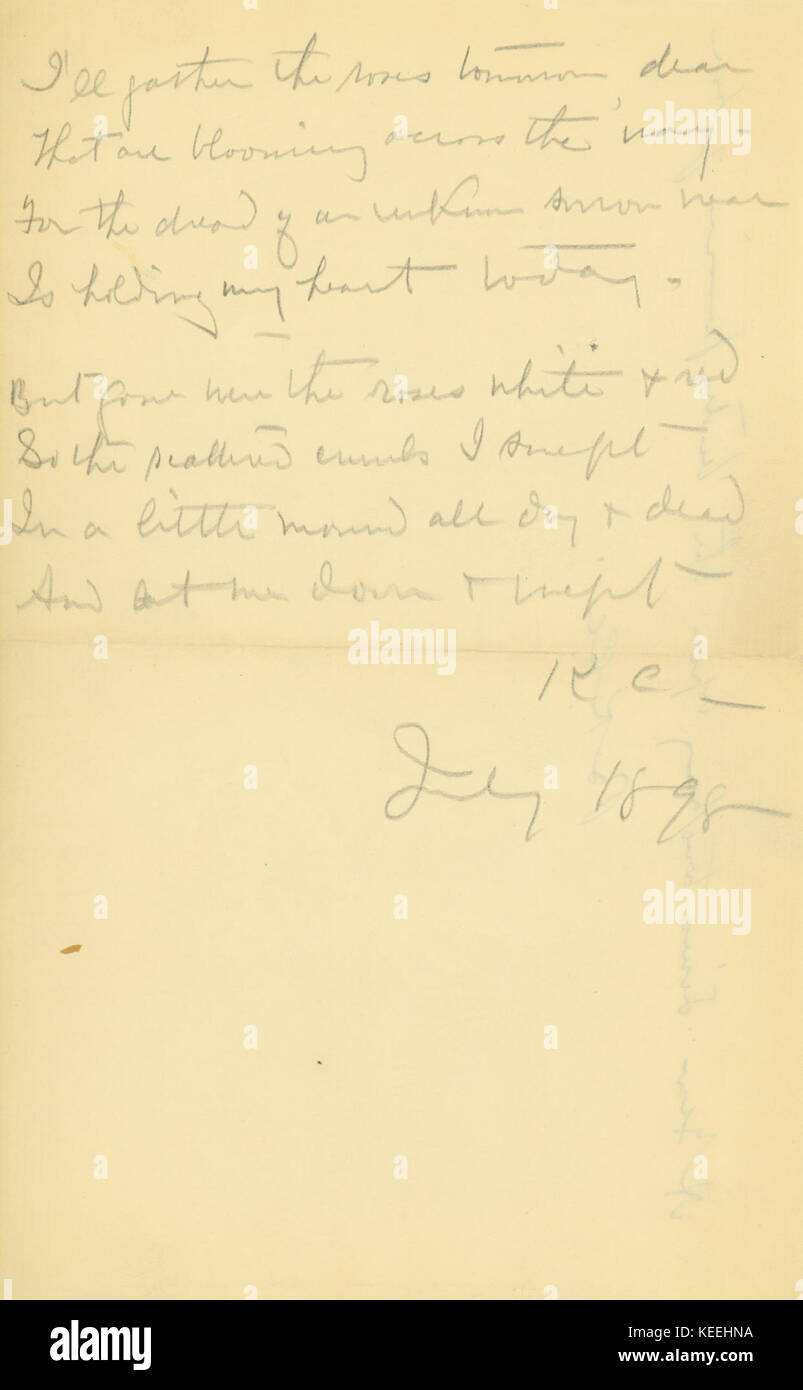 I'll gather the roses tomorrow dear
That are blooming across the way -
For the dread of an unknown sorrow near
Is holding my heart today -
But gone were the roses white & red
So the scattered I swept
In a little mound all dry & dead
And sat me down & wept
K C
July 1898
alamy
alamy
a alamy stock photo
KEEHNA
www.alamy.com